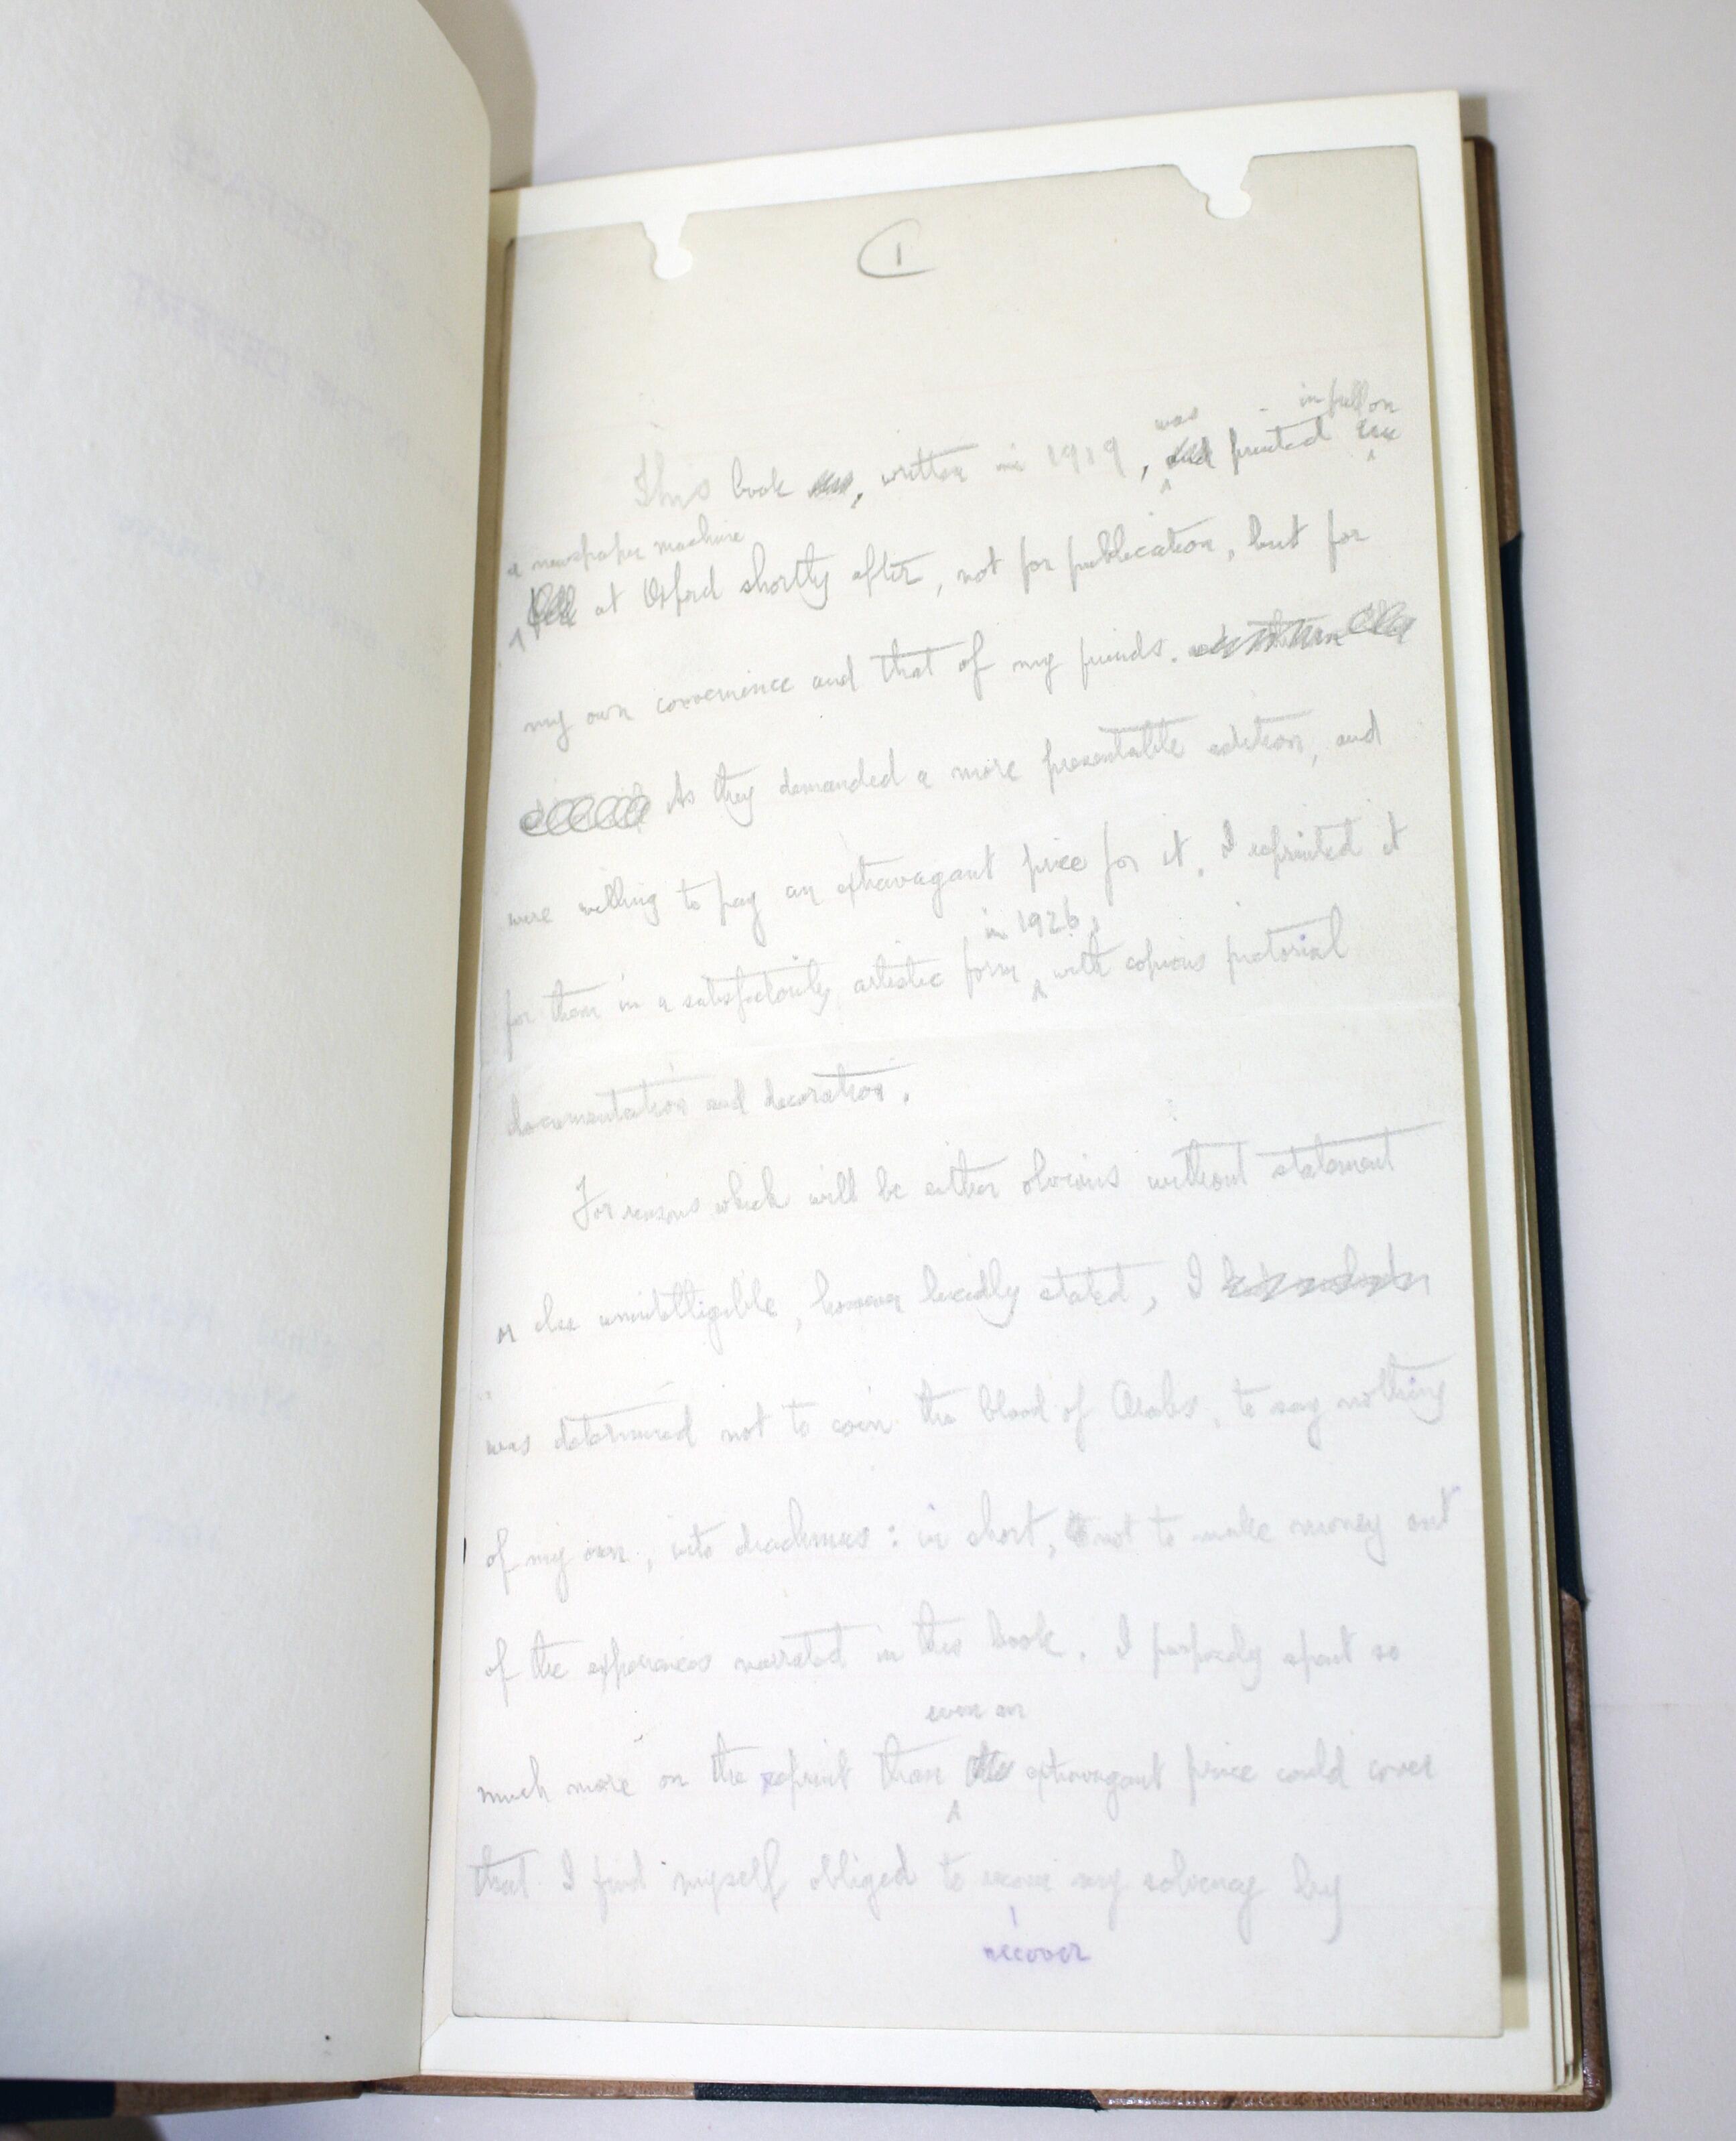 1
was in full on
This book , written in 1919, printed
a newspaper machine
at Oxford shortly after, not for publication, but for
my own convenience and that of my friends.
As they demanded a more presentable edition, and
were willing to pay an extravagant price for it, I reprinted it
in 1926,
for them in a satisfactorily artistic form with copious pictorial
documentation and decoration.
For reasons which will be either obvious without statement
or else unintelligible, however lucidly stated, I
was determined not to coin the blood of Arabs, to say nothing
of my own, into drachmas: in short, not to make money out
of the experiences narrated in this book. I purposely spent so
even an
much more on the reprint than the extravagant price could cover
that I find myself obliged to my solvency by
recover